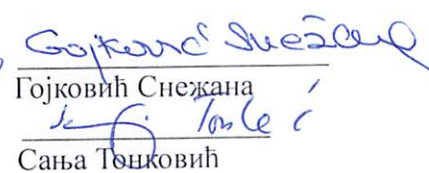 Gojković Snežana
Гојковић Снежана
Сања Тонковић